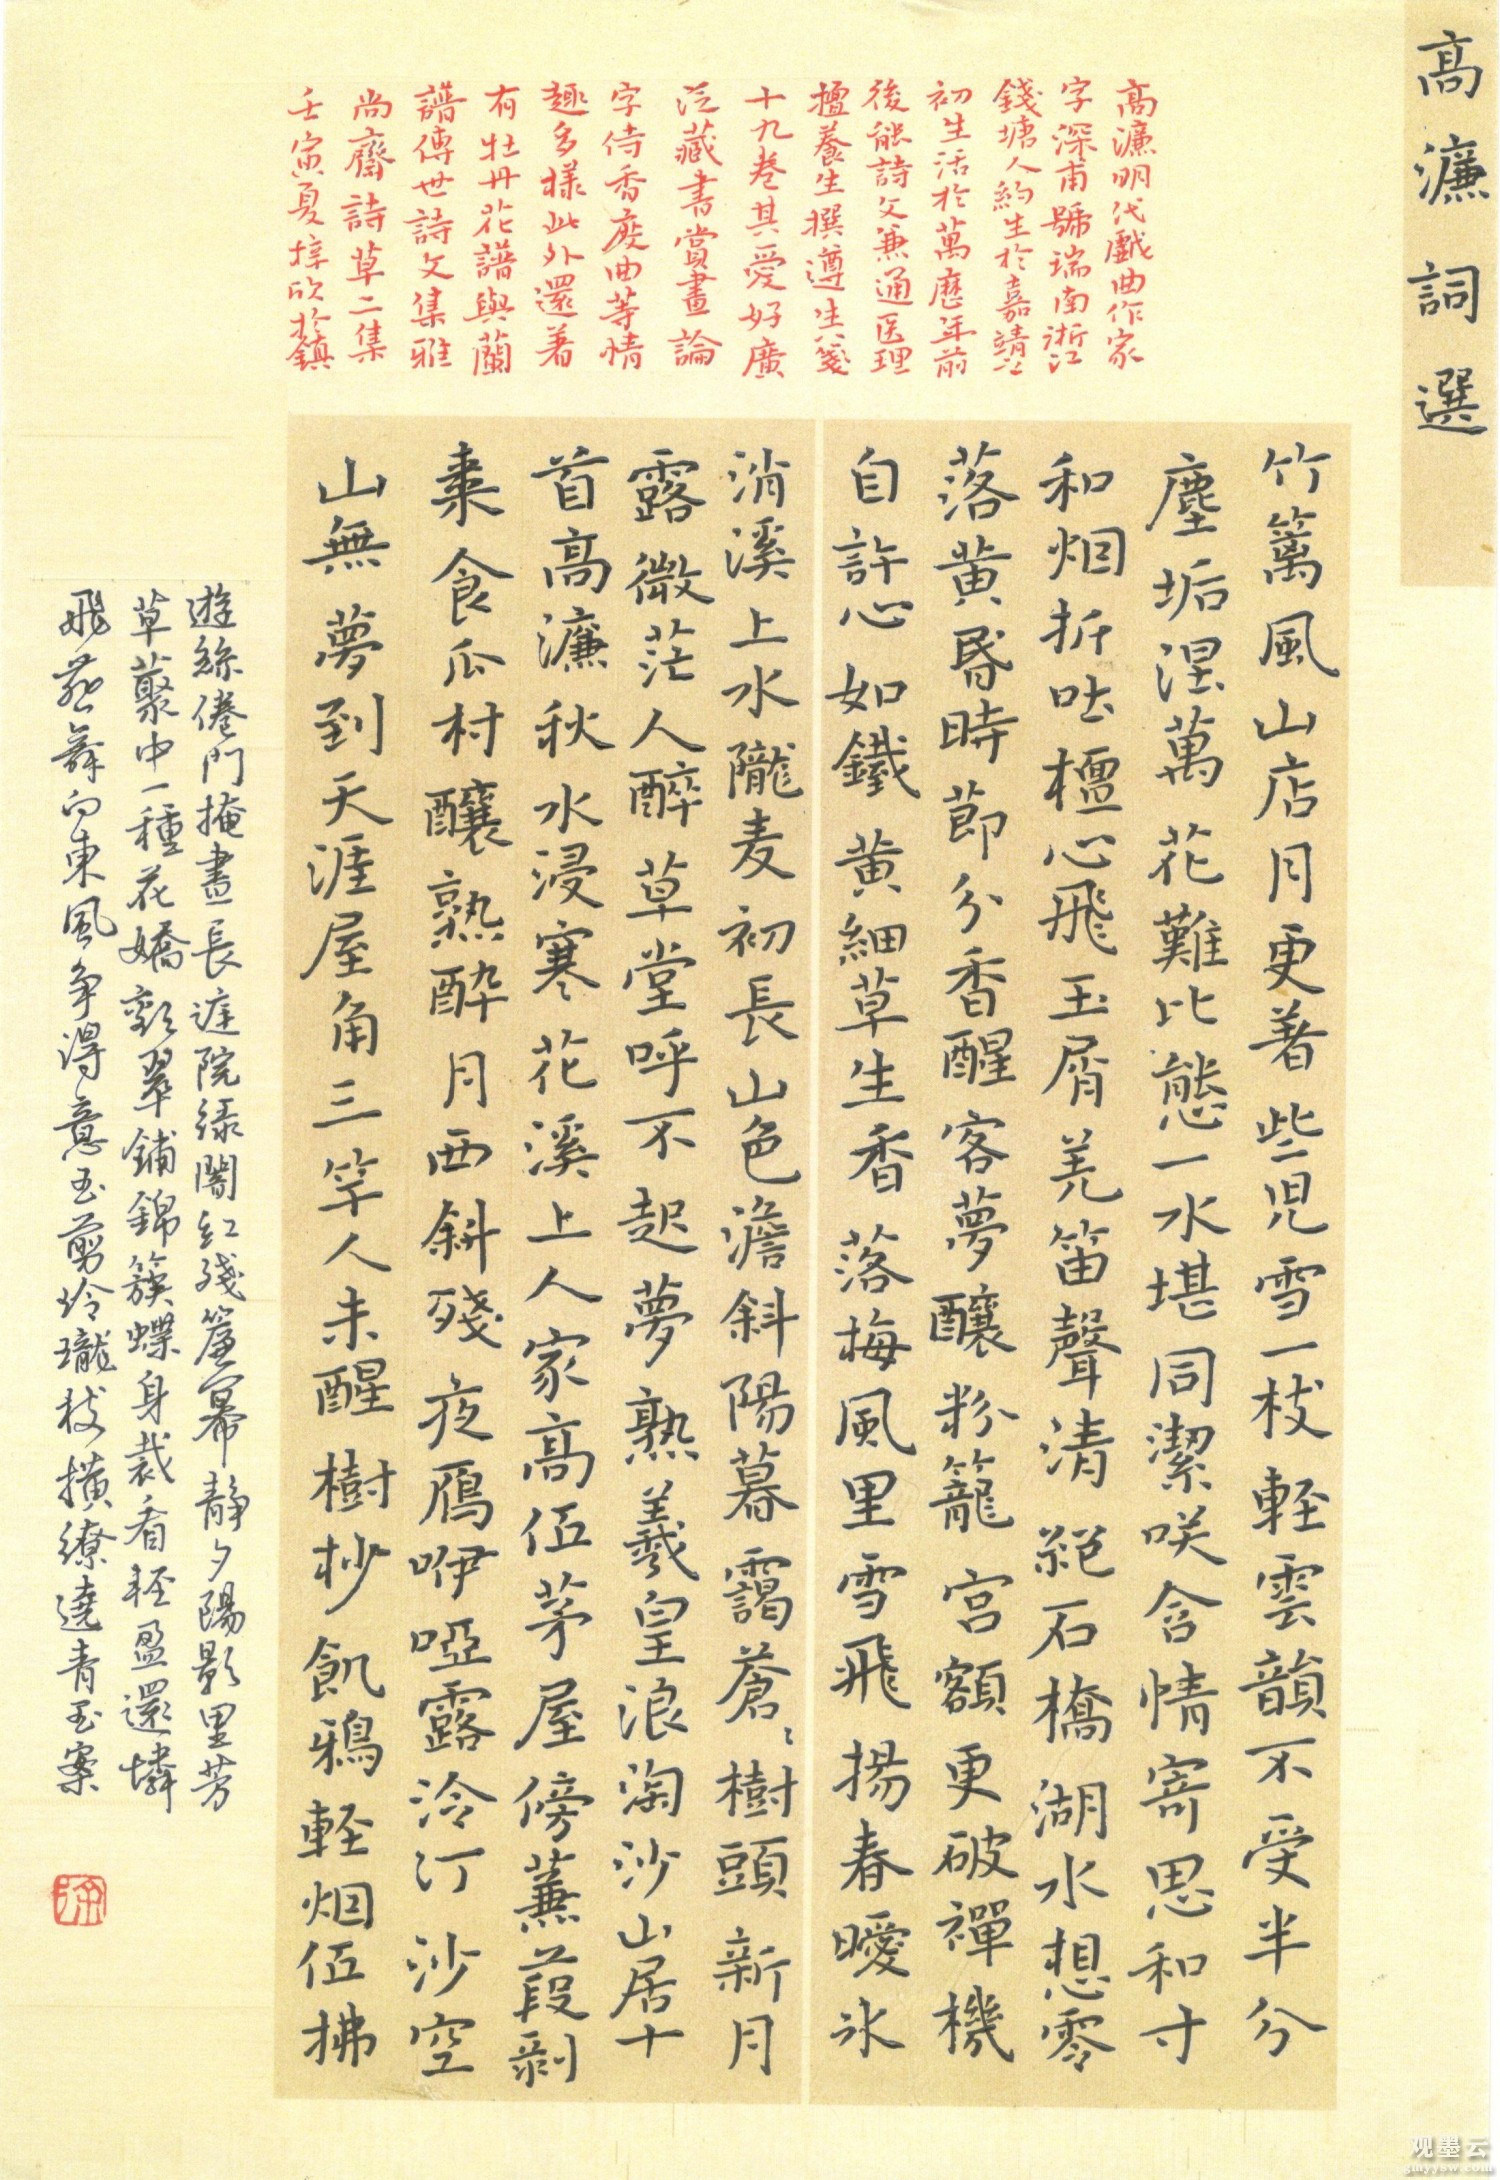 高濂詞選
高濂明代戲曲作家
字深甫號瑞南浙江
錢塘人約生於嘉靖
初生活於萬曆年前
後能詩文兼通医理
擅養生撰遵生八箋
十九卷其愛好廣
泛藏書賞畫論
字侍香度曲等情
趣多樣此外還著
有牡丹花譜與蘭
譜傳世詩文集雅
尚齋詩草二集
壬寅夏梓欣於鎮
竹篱風山店月更著些児雪一枝軽雲韻不受半分
塵垢涅萬花難比態一水堪同潔咲含情寄思和寸
和烟折吐檀心飛玉屑羌笛聲清絕石橋湖水想零
落黄昏時節分香醒客夢釀粉籠宮額更破禪機
自許心如鐵黄細草生香落梅風里雪飛揚春曖氷
消溪上水隴麦初長山色澹斜陽暮靄蒼〻樹頭新月
露微茫人醉草堂呼不起夢熟羲皇浪淘沙山居十
首高濂秋水浸寒花溪上人家高低茅屋傍蒹葭剝
棗食瓜村釀熟酔月西斜殘夜鴈咿啞露泠汀沙空
山無夢到天涯屋角三竿人未醒樹杪飢鴉軽烟低拂
遊絲倦門掩晝長庭院綠闇紅殘簾幕靜夕陽影里芳
草叢中一種花嬌顫翠鋪錦簇蝶身裁看軽盈還憐
飛燕舞向東風争得意玉剪玲瓏枝横繚遶青玉案
观墨云